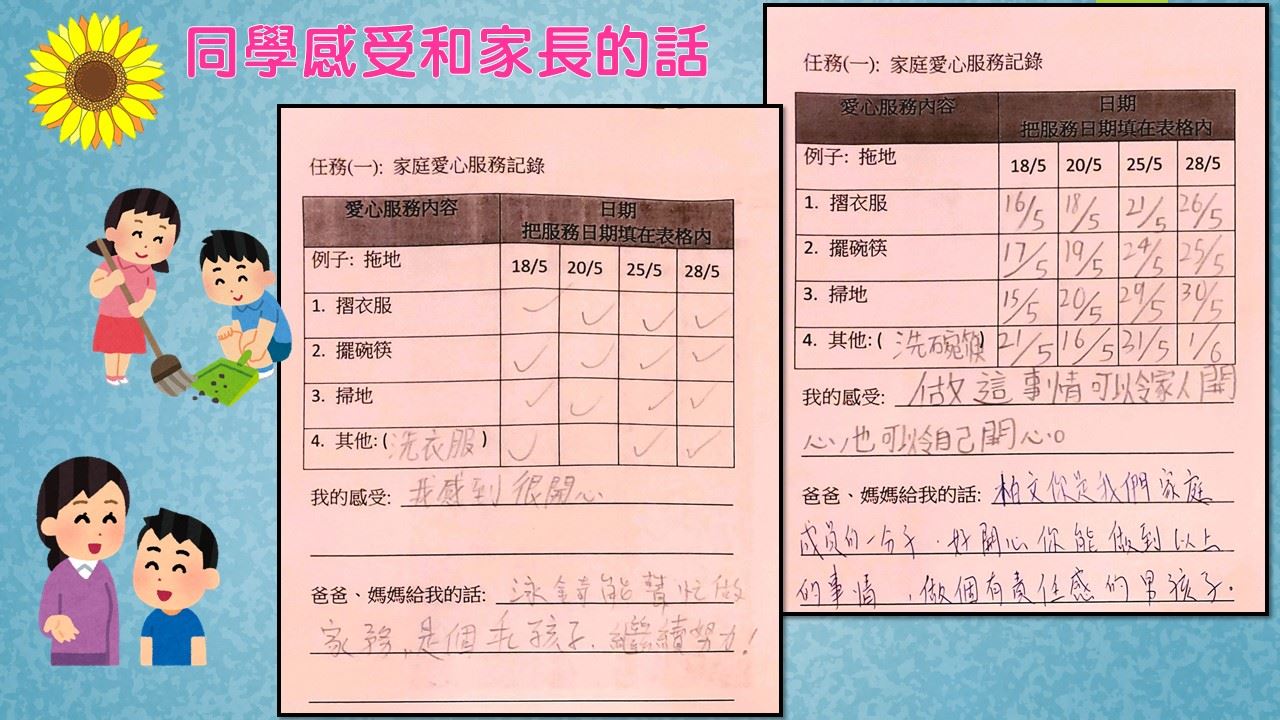 同學感受和家長的話
任務(一): 家庭愛心服務記錄
愛心服務內容 日期
把服務日期填在表格內
例子: 拖地 18/5 20/5 25/5 28/5
1. 摺衣服 ✓ ✓ ✓ ✓
2. 擺碗筷 ✓ ✓ ✓ ✓
3. 掃地 ✓ ✓ ✓ ✓
4. 其他: (洗衣服) ✓ ✓ ✓
我的感受: 我感到很開心
爸爸、媽媽給我的話: 泳能幫忙做
家務,是個乖孩子.繼續努力!
任務(一): 家庭愛心服務記錄
愛心服務內容 日期
把服務日期填在表格內
例子: 拖地 18/5 20/5 25/5 28/5
1. 摺衣服 16/5 18/5 21/5 26/5
2. 擺碗筷 17/5 19/5 24/5 25/5
3. 掃地 15/5 20/5 29/5 30/5
4. 其他: (洗碗筷) 21/5 16/5 31/5 1/6
我的感受: 做這事情可以令家人開
心,也可以令自己開心。
爸爸、媽媽給我的話: 柏文你是我們家庭
成員的一分子.好開心你能做到以上
的事情,做個有責任感的男孩子.